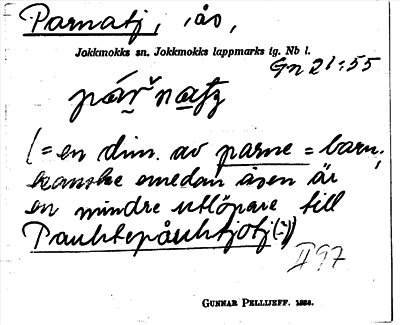 Parnatj, ås,
Jokkmokks sn. Jokkmokks lappmarks tg. Nb l.
Gn 21:55
(= en dim. av parne = barn,
kanske emedan åsen är
en mindre utlöpare till
II 97
GUNNAR PELLIJEFF.